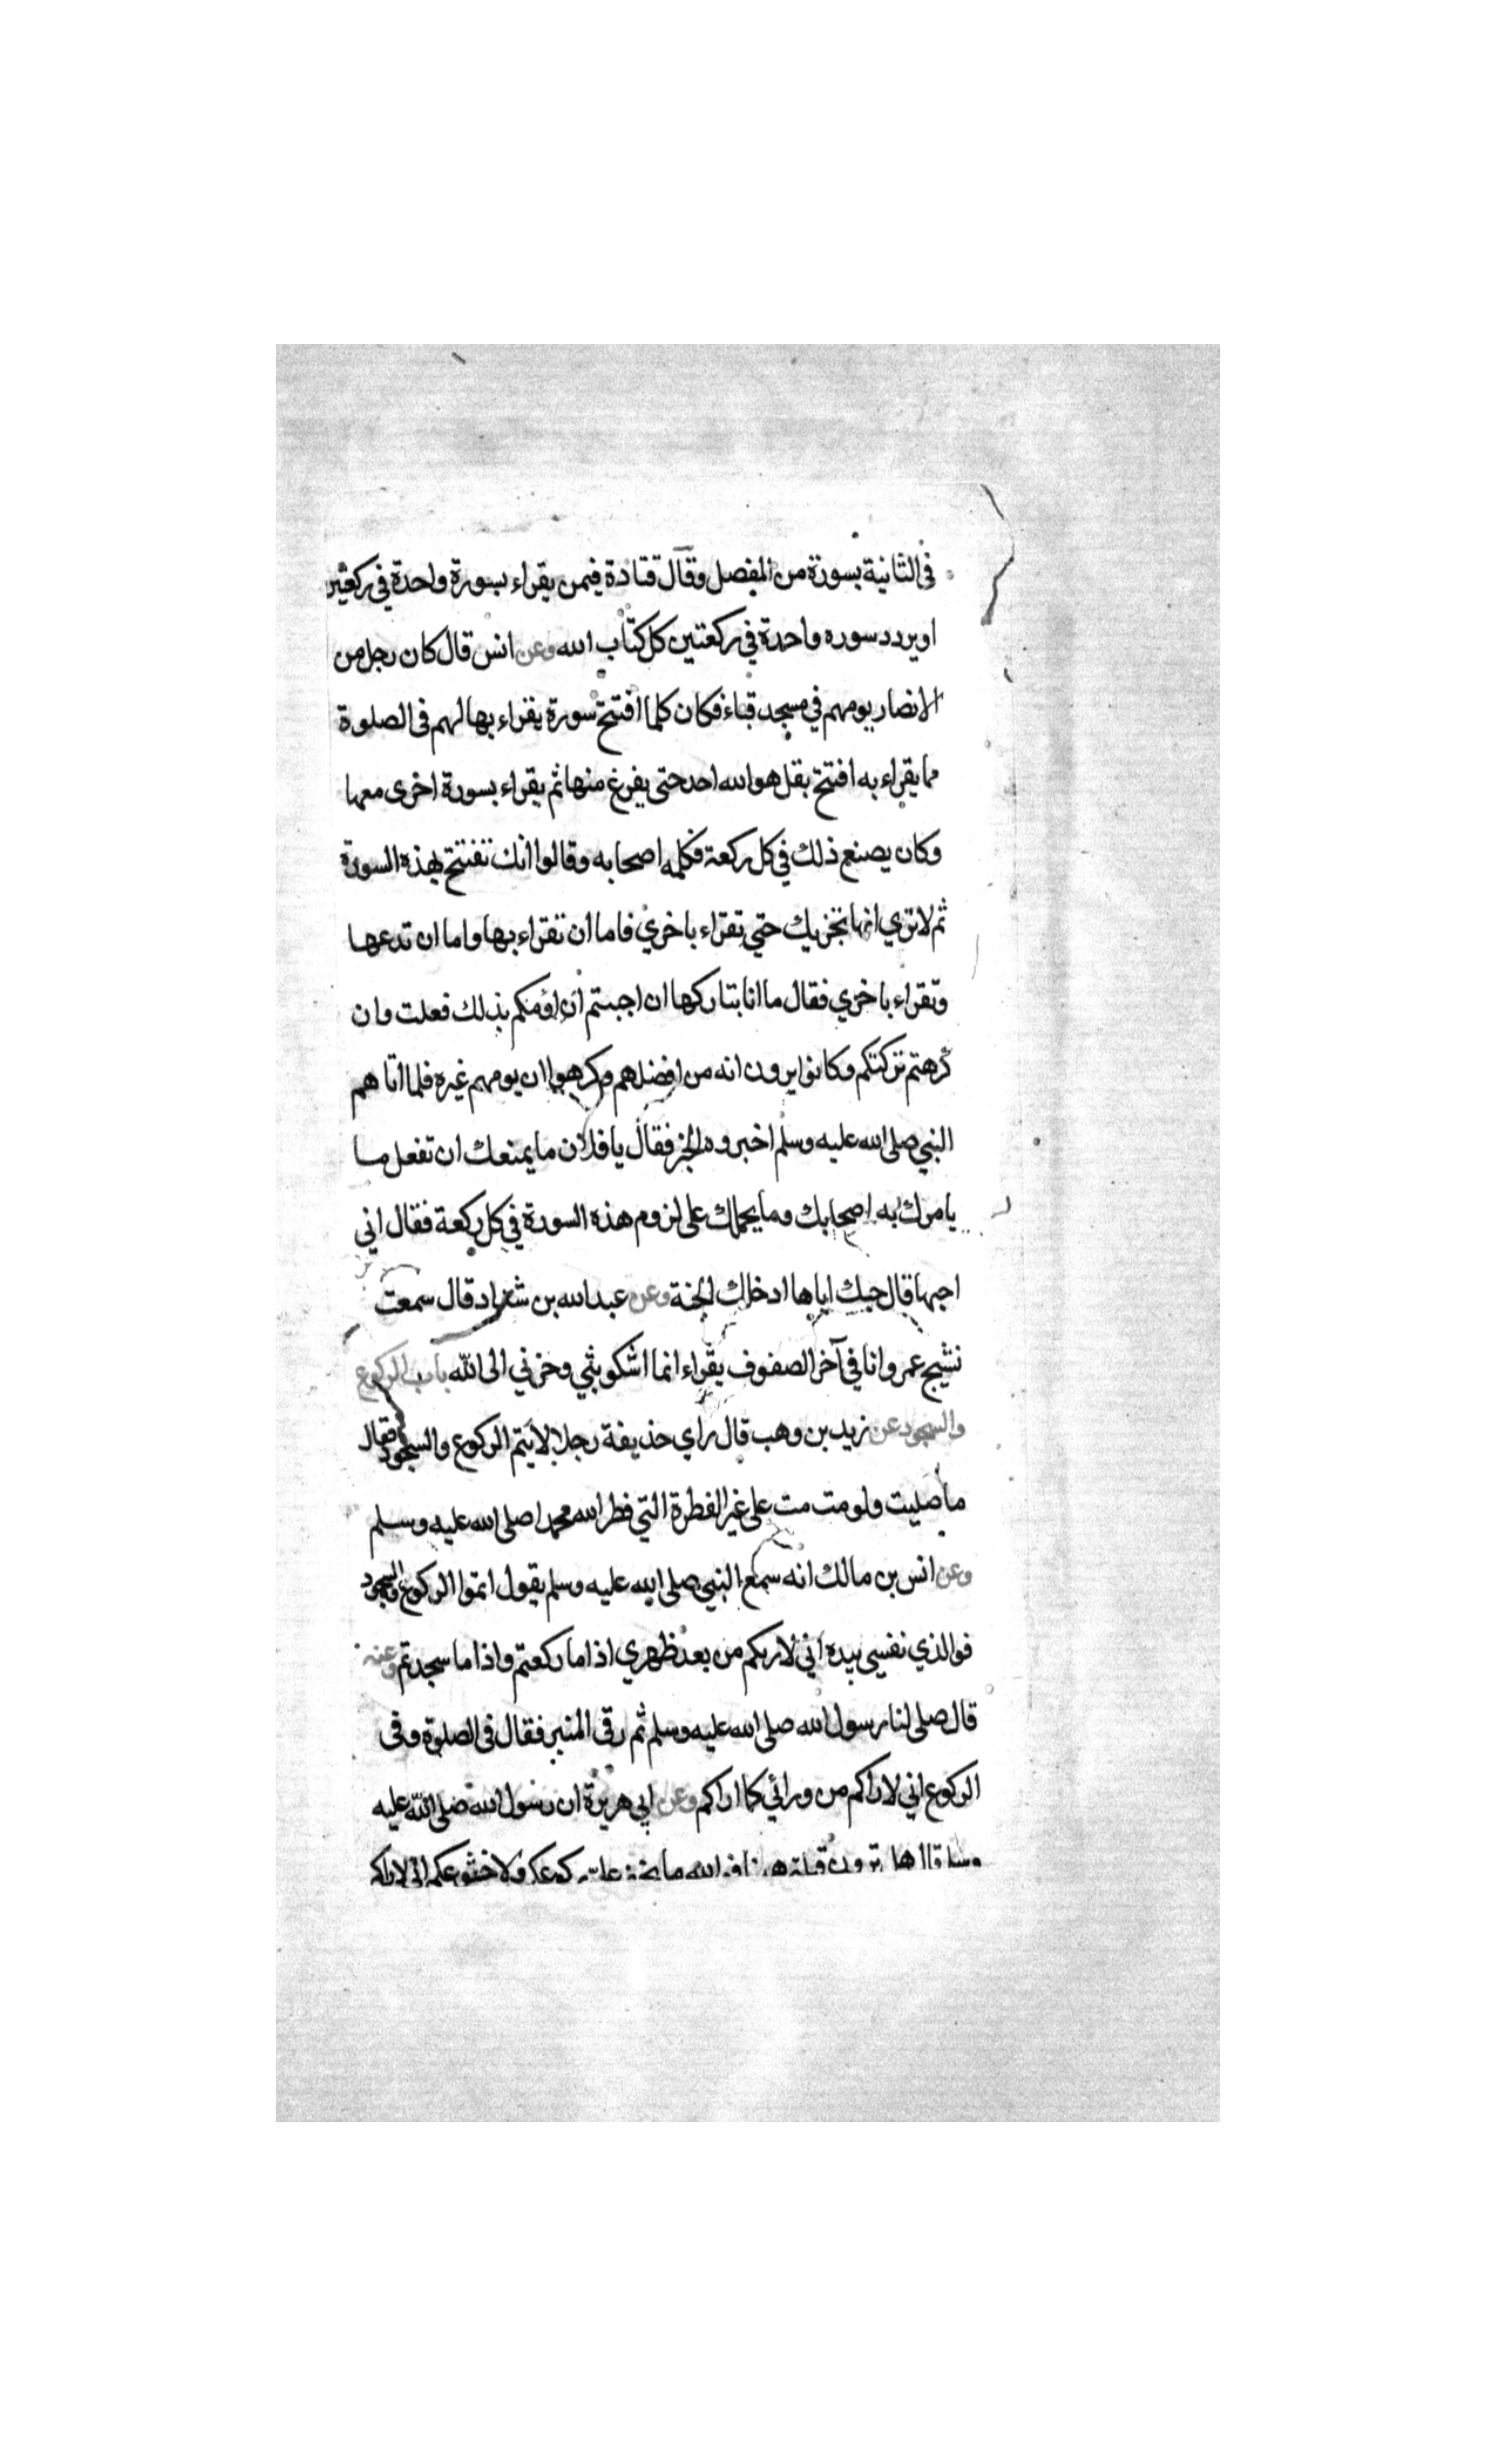 في الثانية بسورة من المفصل وقال قتادة فيمن يقراء بسورة واحدة في ركعتين
او يردد سوره واحدة في ركعتين كل كتاب الله وعن انس قال كان رجل من
الانصار يومهم في مسجد قباء فكان كلما افتتح سورة يقراء بها لهم في الصلوة
مما يقراء به افتتح بقل هو الله احد حتى يفرغ منها ثم يقراء بسورة اخرى معها
وكان يصنع ذلك في كل ركعة فكلمه اصحابه وقالوا انك تفتتح بهذه السورة
ثم لا تري انها تجزيك حتي تقراء باخري فاما ان تقراء بها واما ان تدعها
وتقراء باخري فقال ما انا بتاركها ان احببتم ان اؤمكم بذلك فعلت وان
كرهتم تركتكم وكانوا يرون انه من افضلهم وكرهوا ان يومهم غيره فلما اتاهم
النبي صلى الله عليه وسلم اخبروه الخبر فقال يا فلان ما يمنعك ان تفعل ما
يامرك به اصحابك وما يحملك على لزوم هذه السورة في كل ركعة فقال اني
احبها قال حبك اياها ادخلك الجنة وعن عبد الله بن شداد قال سمعت
نشيج عمر وانا في آخر الصفوف يقراء انما اشكو بثي وحزني الى الله باب الركوع
والسجود عن زيد بن وهب قال راي حذيفة رجلا لا يتم الركوع والسجود فقال
ما صليت ولو مت مت على غير الفطرة التي فطر الله محمدا صلى الله عليه وسلم
وعن انس بن مالك انه سمع النبي صلى الله عليه وسلم يقول اتموا الركوع والسجود
فوالذي نفسي بيده اني لاريكم من بعد ظهري اذا ما ركعتم واذا ما سجدتم وعنه
قال صلى لنا رسول الله صلى الله عليه وسلم ثم رقى المنبر فقال في الصلوة وفى
الركوع اني لاراكم من ورائي كما اراكم وعن ابي هريرة ان رسول الله صلى الله عليه
ترون قبلتي الله ما ولا خشوعكم اني لاراكم